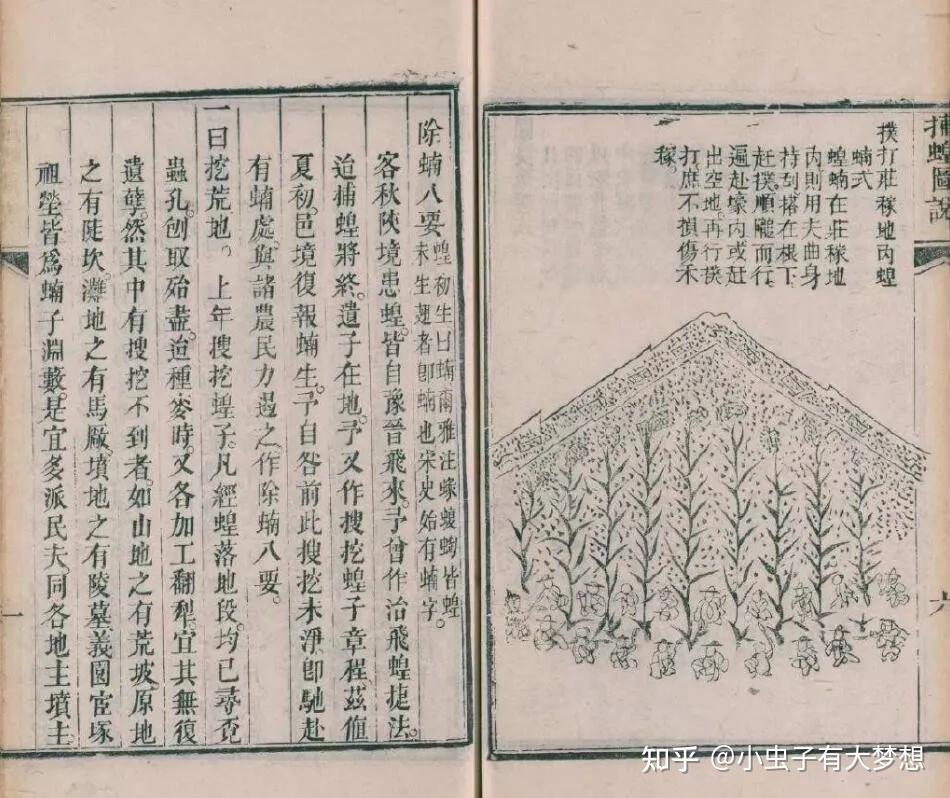 捕蝗圖說
撲打莊稼地內蝗
蝻式
蝗蝻在莊稼地
內則用夫曲身
持刮搭在根下
赶撲順隴而行
遍赴壕內或赶
出空地再行撲
打庶不損傷禾
稼。
六
除蝻八要 蝗初生曰蝻爾雅注蝝蝮蜪皆蝗
未生翅者卽蝻也宋史始有蝻字。
客秋陝境患蝗。皆自豫晉飛來。予曾作治飛蝗捷法。
迨捕蝗將終。遺子在地。予又作搜挖蝗子章程。茲值
夏初。邑境復報蝻生。予自咎前此搜挖未淨卽馳赴
有蝻處。與諸農民力遏之。作除蝻八要。
一曰挖荒地。上年搜挖蝗子。凡經蝗落地段。均已尋覓
蟲孔。刨取殆盡。迨種麥時。又各加工翻犁。宜其無復
遺孽。然其中有搜挖不到者。如山地之有荒坡。原地
之有陡坎灘地之有馬厰。墳地之有陵墓義園宦塚
祖塋皆爲蝻子淵藪。是宜多派民夫同各地主墳主
一
知乎 @小虫子有大梦想